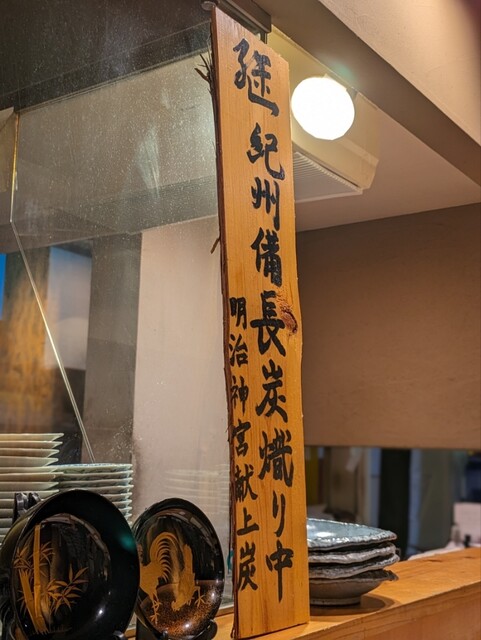 継 紀州備長炭熾り中
明治神宮献上炭